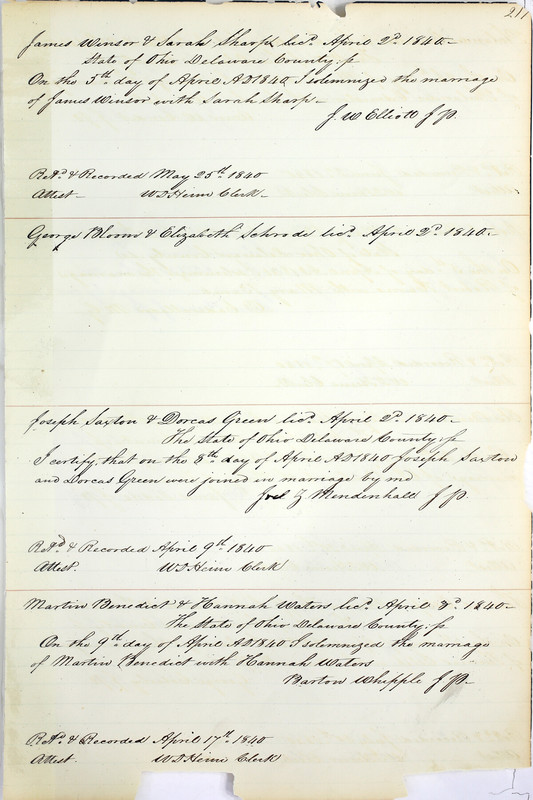 217
James Winsor & Sarah Sharp licd. April 2d. 1840.
State of Ohio Delaware County: ss
On the 5th day of April AD 1840 I solemnized the marriage
of James Winsor with Sarah Sharp.
J. W Elliott J P.
Retd. & Recorded May 25th 1840
Attest W D Heim Clerk
George Bloom & Elizabeth Schrode licd. April 2d. 1840.
Joseph Saxton & Dorcas Green licd. April 2d. 1840
The State of Ohio Delaware County: ss
I certify that on the 8th day of April AD 1840 Joseph Saxton
and Dorcas Green were joined in marriage by me
Joel Z Mendenhall J P.
Retd. & Recorded April 9th 1840
Attest. W D Heim Clerk
Martin Benedict & Hannah Waters licd. April 8d. 1840
The State of Ohio Delaware County: ss
On the 9th day of April AD 1840 I solemnized the marriage
of Martin Benedict with Hannah Waters
Barton Whipple J P.
Retd. & Recorded April 17th. 1840
Attest. W D Heim Clerk